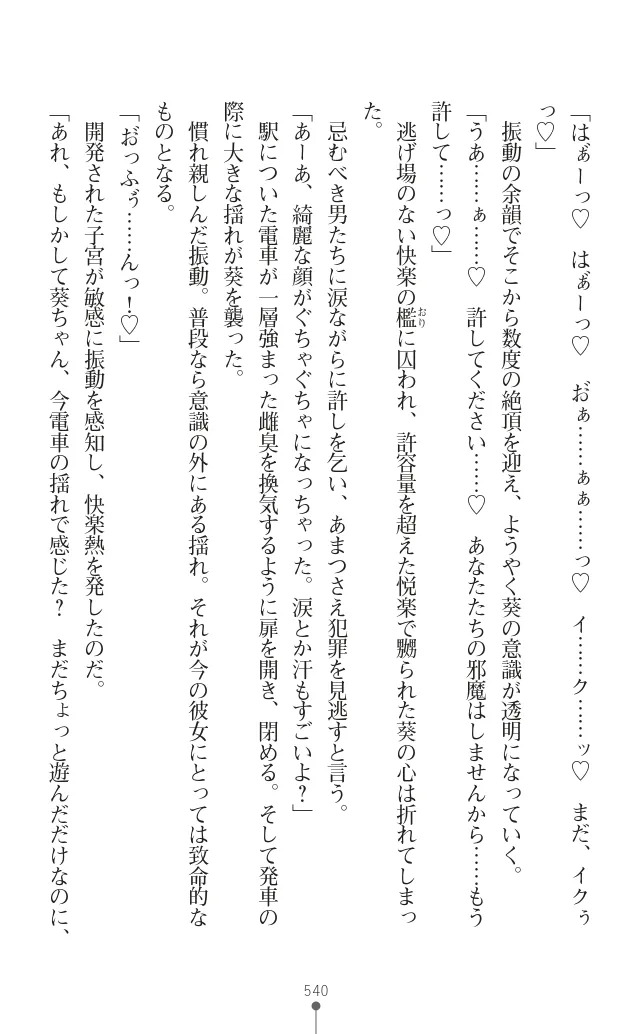 「はぁーっ♡　はぁーっ♡　お゙ぁ……ぁぁ……っ♡　イ……ク……ッ♡　まだ、イクぅ
っ♡」
振動の余韻でそこから数度の絶頂を迎え、ようやく葵の意識が透明になっていく。
「うあ……ぁ……♡　許してください……♡　あなたたちの邪魔はしませんから……もう
許して……っ♡」
逃げ場のない快楽の檻おりに囚われ、許容量を超えた悦楽で嬲られた葵の心は折れてしまっ
た。
忌むべき男たちに涙ながらに許しを乞い、あまつさえ犯罪を見逃すと言う。
「あーあ、綺麗な顔がぐちゃぐちゃになっちゃった。涙とか汗もすごいよ？」
駅についた電車が一層強まった雌臭を換気するように扉を開き、閉める。そして発車の
際に大きな揺れが葵を襲った。
慣れ親しんだ振動。普段なら意識の外にある揺れ。それが今の彼女にとっては致命的な
ものとなる。
「お゙っふぅ……んっ！♡」
開発された子宮が敏感に振動を感知し、快楽熱を発したのだ。
「あれ、もしかして葵ちゃん、今電車の揺れで感じた？　まだちょっと遊んだだけなのに、
540